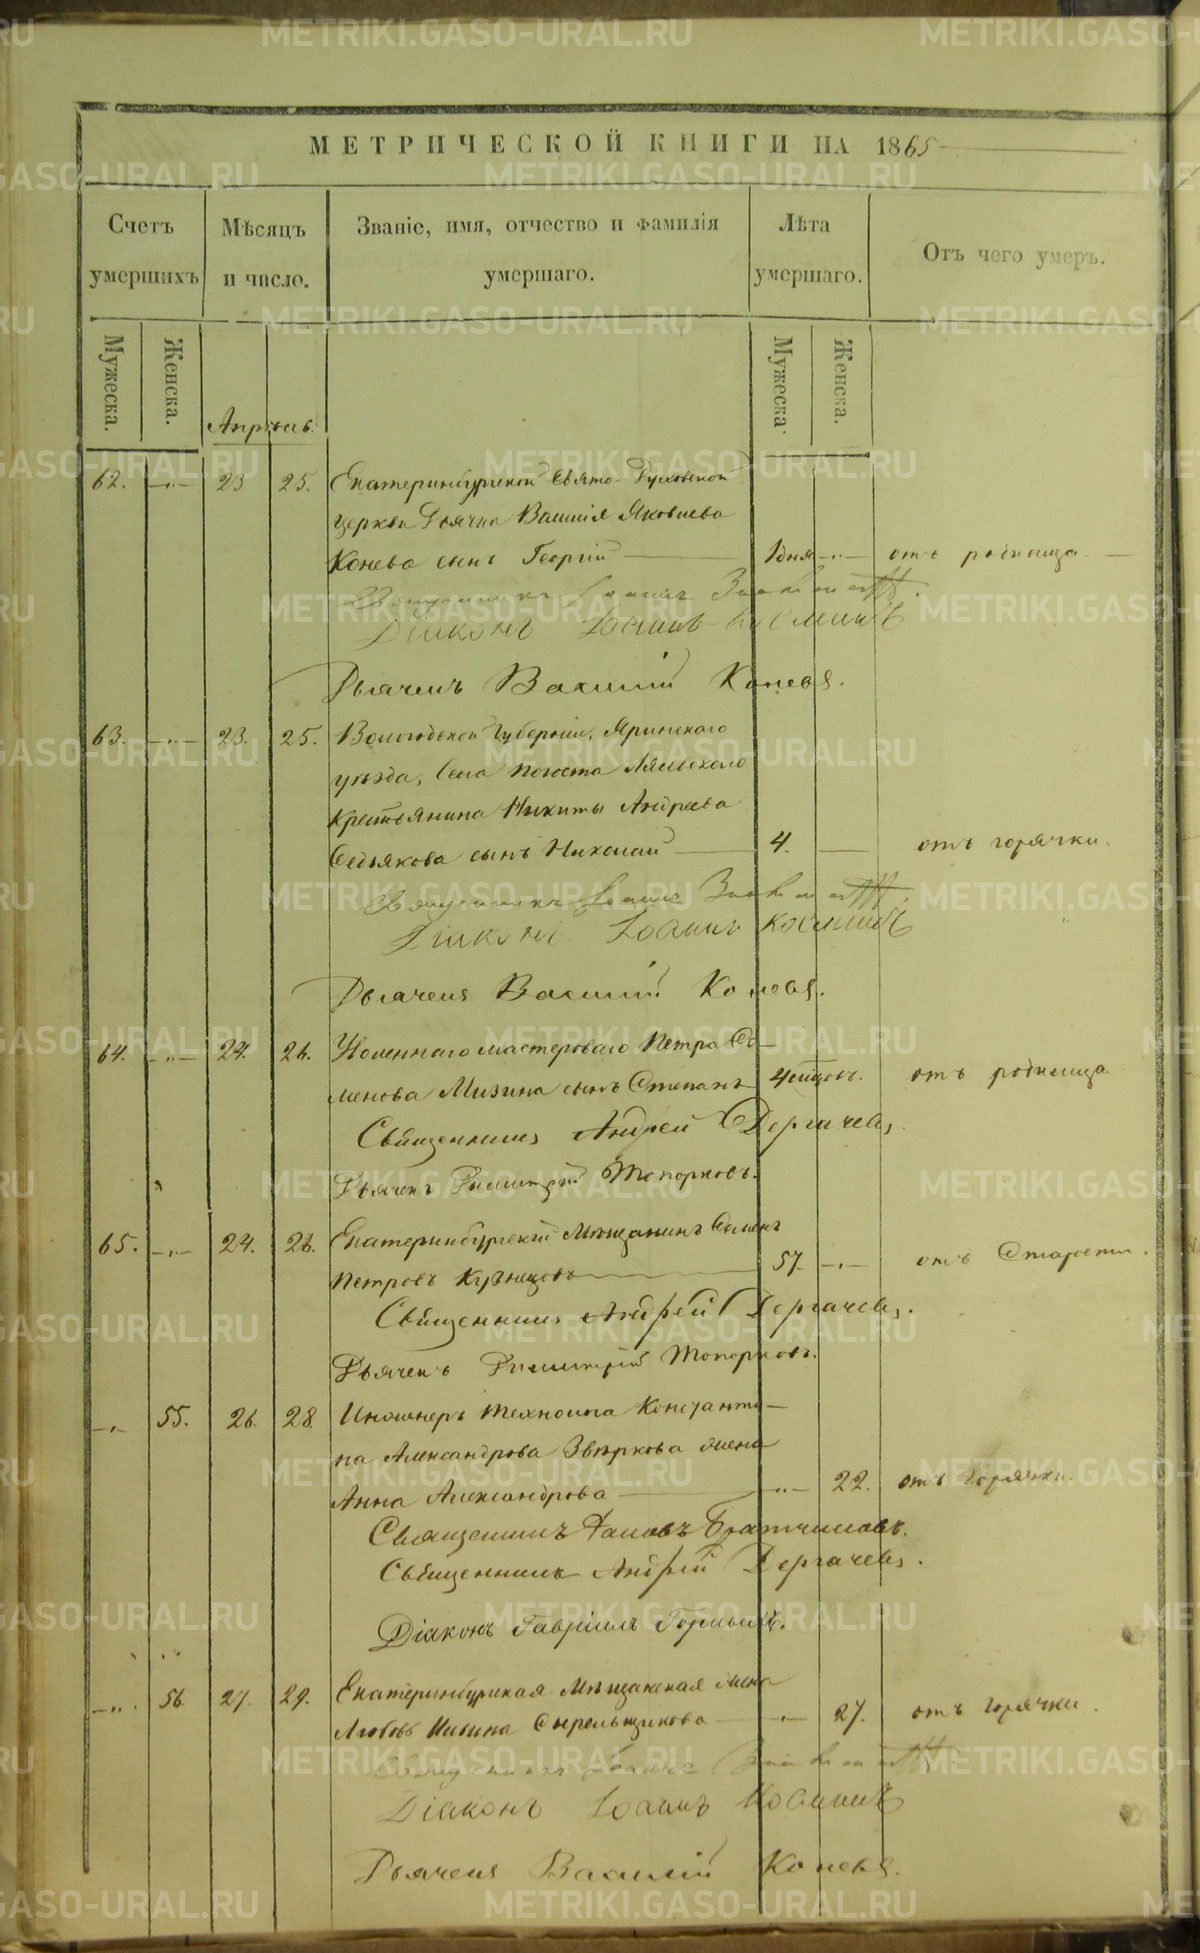 МЕТРИЧЕСКОЙ КНИГИ НА 1865
Счетъ умершихъ
Мѣсяцъ и число.
Званіе, имя, отчество и фамилія умершаго.
Лѣта умершаго.
Отъ чего умеръ.
Мужеска. Женска. Мужеска Женска.
Апрѣль.
62. 23 25. Екатеринбургской Свято-Духовской
церкви Дьячка Василія Яковлева
Конева сынъ Георгій 1 дня отъ родимца
Священникъ Іоаннъ
Діаконъ Іоаннъ Косминъ
Дьячекъ Василій Коневъ.
63. 23. 25. Вологодской Губерніи, Яринскаго
уѣзда, Села Погоста Ляльскаго
Крестьянина Никиты Андреева
Федякова сынъ Николай 4. отъ горячки.
Священникъ Іоаннъ
Діаконъ Іоаннъ Косминъ
Дьячекъ Василій Коневъ.
64. 24. 26. Уволеннаго мастероваго Петра Се-
менова Мизина сынъ Степанъ 4 мѣсяцовъ. отъ родимца
Священникъ Андрей Дергачевъ
Дьячекъ Димитрій Топорковъ.
65. 24. 26. Екатеринбургскій Мѣщанинъ Семенъ
Петровъ Кузнецовъ 57 отъ Старости.
Священникъ Андрей Дергачевъ.
Дьячекъ Димитрій Топорковъ.
55. 26. 28 Инженеръ Технолога Константи-
на Александрова Звѣркова жена
Анна Александрова 22. отъ горячки.
Священникъ Іаковъ Братчиковъ.
Священникъ Андрей Дергачевъ.
Діаконъ Гавріилъ Горныхъ.
56. 27. 29. Екатеринбургская Мѣщанская жена
Любовь Ильина Стрельщикова 27. отъ горячки.
Священникъ Іоаннъ
Діаконъ Іоаннъ Косминъ
Дьячекъ Василій Коневъ.
METRIKI.GASO-URAL.RU